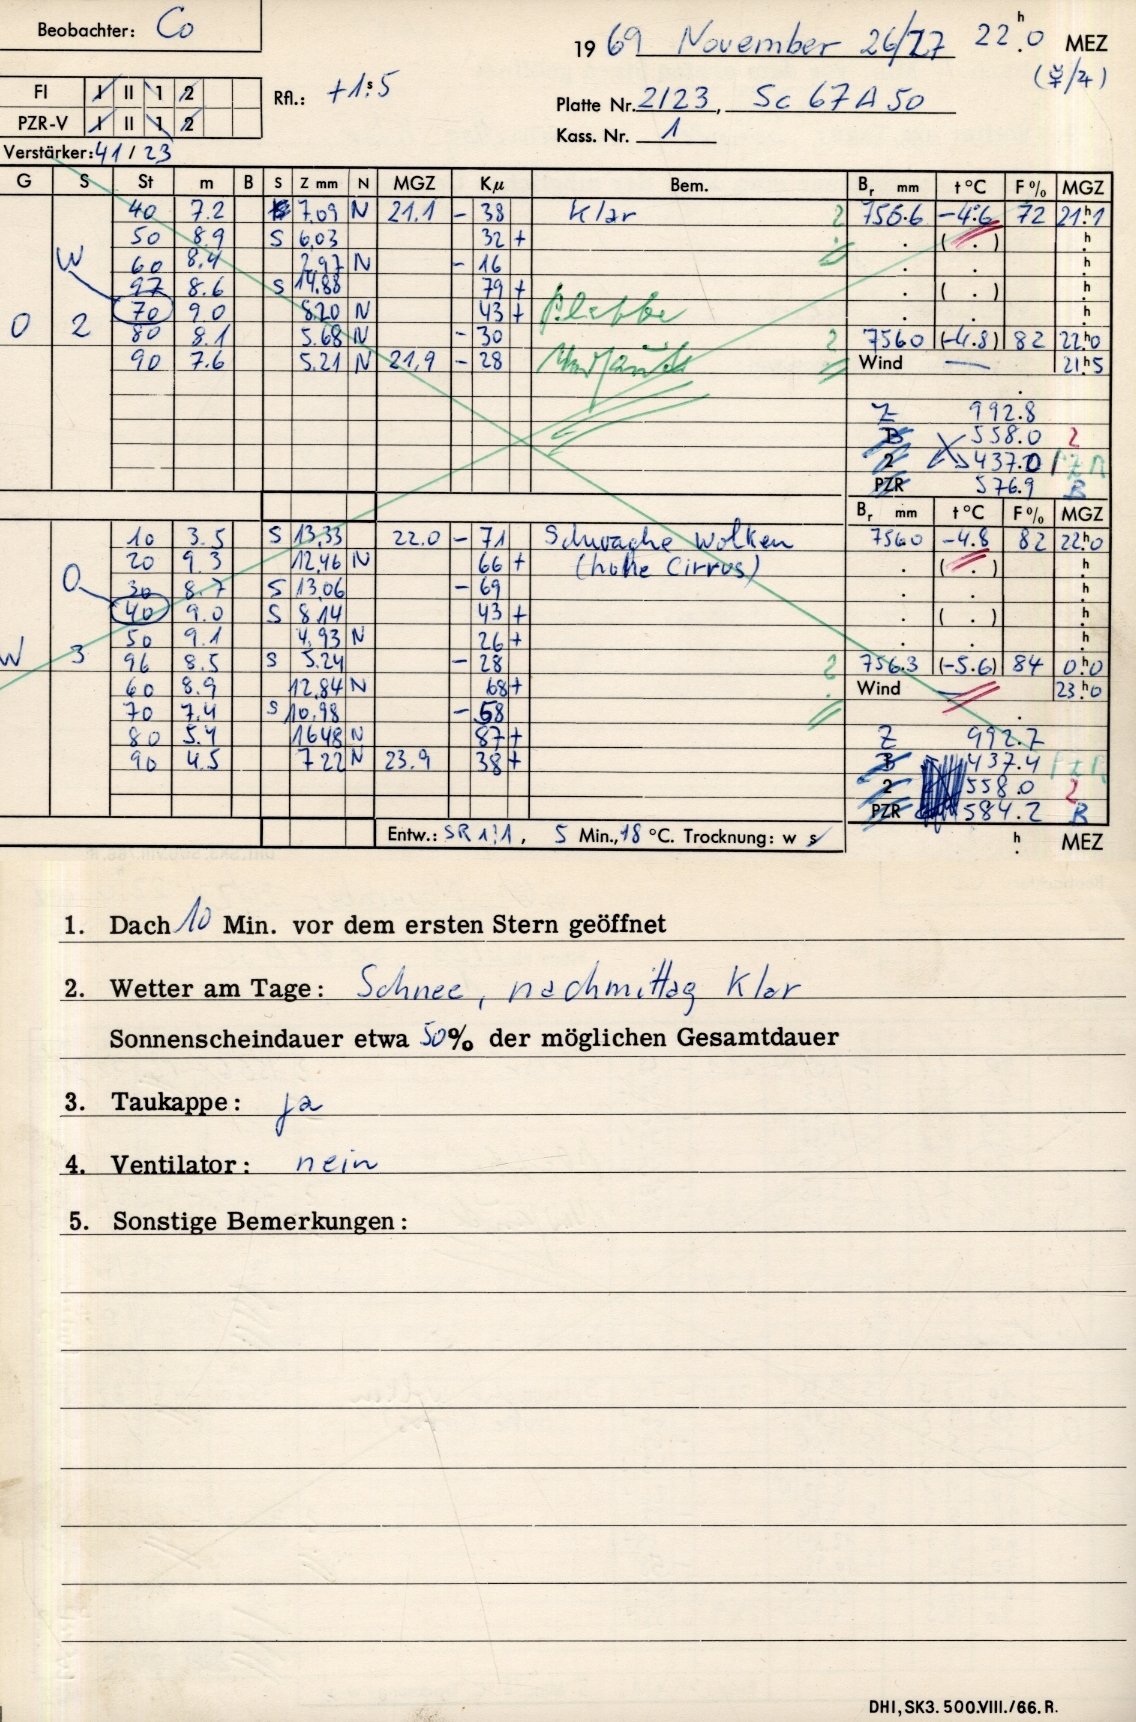 Beobachter: Co
1969 November 26/27 22.h0 MEZ
FI I II 1 2
Rfl.: +1.s5
Platte Nr. 2123, Sc 67A50
PZR-V I II 1 2
Kass. Nr. 1
Verstärker: 41 / 23
G S St m B S Z mm N MGZ Kμ Bem. Br mm t °C F % MGZ
40 7.2 7.09 N 21.1 - 38 Klar 2 756.6 -4.6 72 21.h1
50 8.9 S 6.03 32 + ( . ) h
W 60 8.4 2.97 N - 16 . . h
97 8.6 S 14.88 79 + . ( . ) h
70 9.0 8.20 N 43 + . . h
O 2 80 8.1 5.68 N - 30 2 756.0 (-4.8) 82 22.h0
90 7.6 5.21 N 21.9 - 28 Wind — 21.h5
Z 992.8
B 558.0 2
2 437.0 PZR
PZR 576.9 B
Br mm t °C F % MGZ
10 3.5 S 13.33 22.0 - 71 Schwache Wolken 756.0 -4.8 82 22.h0
20 9.3 12.46 N 66 + (hohe Cirrus) . ( . ) h
O 30 8.7 S 13.06 - 69 . . h
40 9.0 S 8.14 43 + . ( . ) h
50 9.1 4.93 N 26 + . . h
W 3 96 8.5 S 5.24 - 28 2 756.3 (-5.6) 84 0.h0
60 8.9 12.84 N 68 + Wind — 23.h0
70 7.4 S 10.98 - 58
80 5.4 16.48 N 87 + Z 992.7
90 4.5 7.22 N 23.9 38 + B 437.4 PZR
2 558.0 2
PZR 584.2 B
Entw.: SR 1:1, 5 Min., 18 °C. Trocknung: w s
h MEZ
1. Dach 10 Min. vor dem ersten Stern geöffnet
2. Wetter am Tage: Schnee, nachmittag Klar
Sonnenscheindauer etwa 50% der möglichen Gesamtdauer
3. Taukappe: ja
4. Ventilator: nein
5. Sonstige Bemerkungen:
DHI, SK3. 500.VIII./66. R.